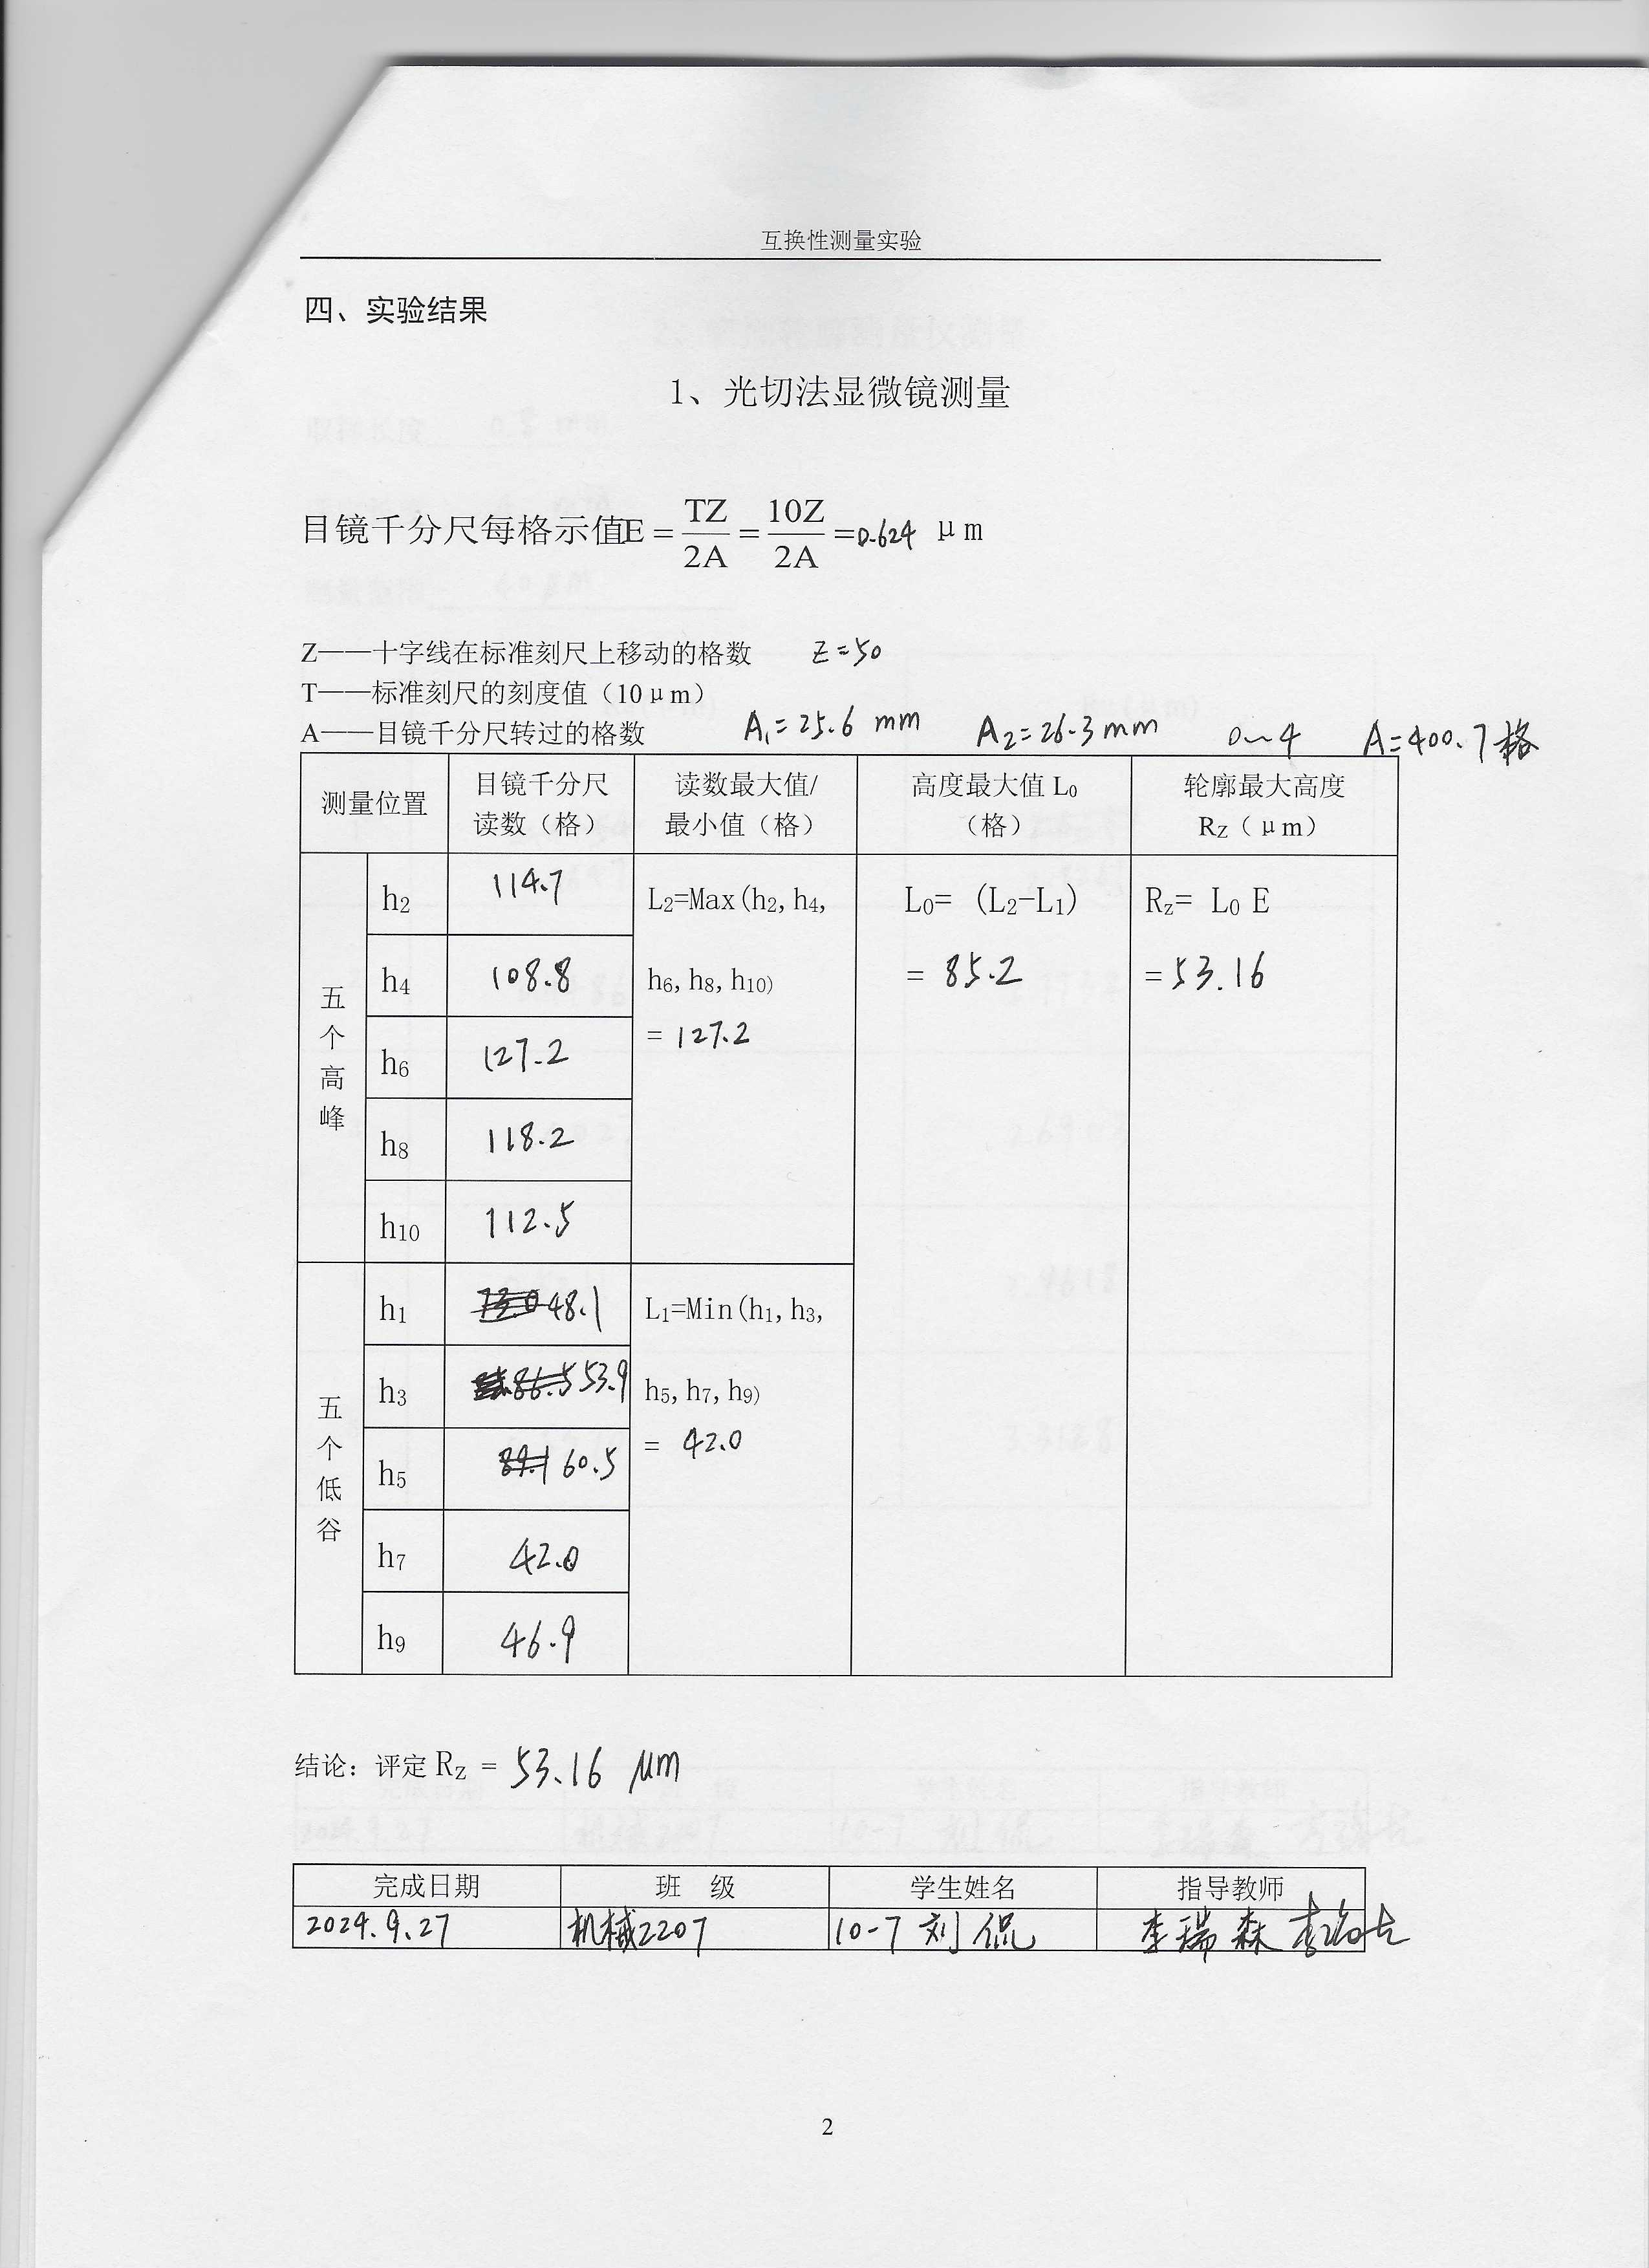 互换性测量实验
四、实验结果
1、光切法显微镜测量
目镜千分尺每格示值E = TZ/2A = 10Z/2A =0.624 μm
Z——十字线在标准刻尺上移动的格数 Z=50
T——标准刻尺的刻度值（10μm）
A——目镜千分尺转过的格数 A₁=25.6 mm A₂=26.3mm 0~4 A=400.7格
测量位置 目镜千分尺读数（格） 读数最大值/最小值（格） 高度最大值 L₀（格） 轮廓最大高度 Rz（μm）
五个高峰
h2 114.7 L2=Max(h2,h4, L0= (L2-L1) Rz= L0 E
h4 108.8 h6,h8,h10) = 85.2 =53.16
h6 127.2 = 127.2
h8 118.2
h10 112.5
五个低谷
h1 48.1 L1=Min(h1,h3,
h3 86.5 53.9 h5,h7,h9)
h5 60.5 = 42.0
h7 42.0
h9 46.9
结论：评定 Rz = 53.16 μm
完成日期 班 级 学生姓名 指导教师
2024.9.27 机械2207 10-7 刘侃 李瑞森
2